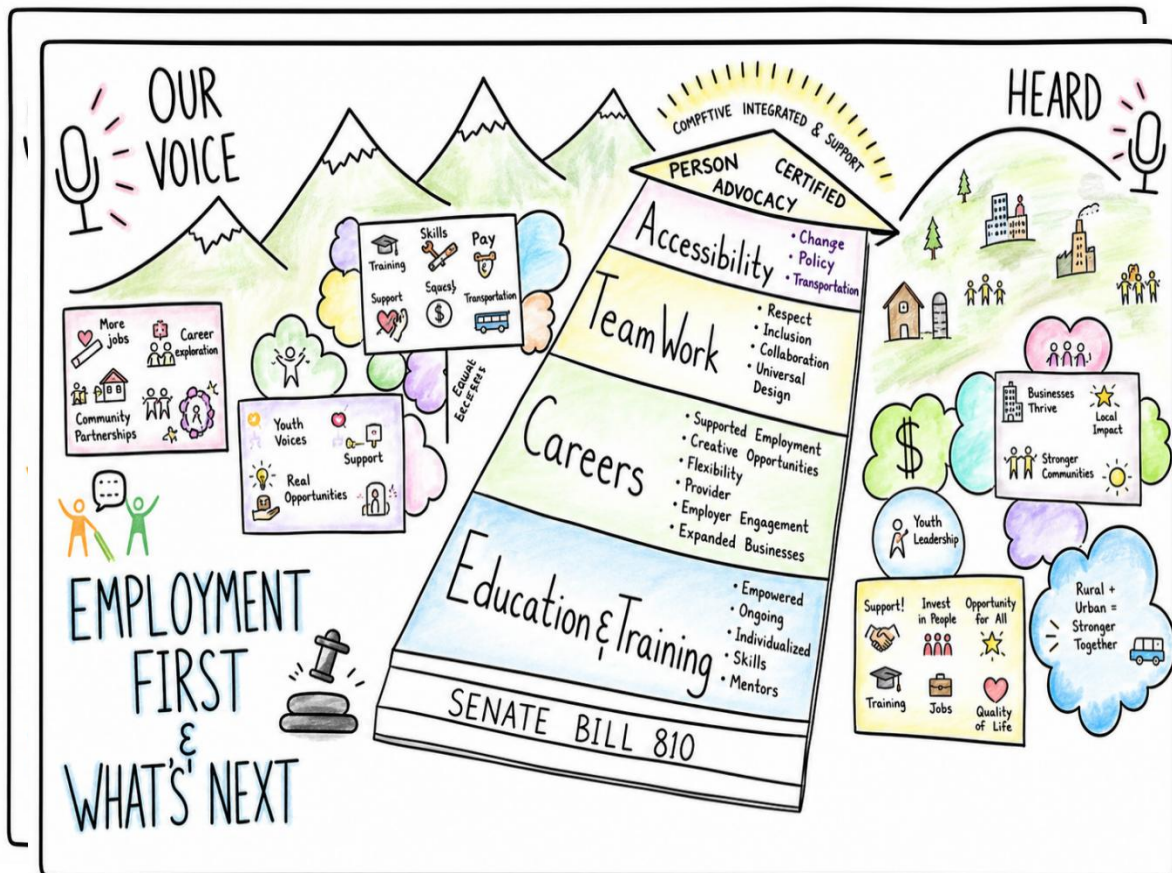 OUR
VOICE
HEARD
COMPFTIVE INTEGRATED & SUPPORT
PERSON
CERTIFIED
ADVOCACY
Accessibility
• Change
• Policy
• Transportation
TeamWork
• Respect
• Inclusion
• Collaboration
• Universal
Design
Careers
• Supported Employment
• Creative Opportunities
• Flexibility
• Provider
• Employer Engagement
• Expanded Businesses
Education & Training
• Empowered
• Ongoing
• Individualized
• Skills
• Mentors
SENATE BILL 810
Training
Skills
Pay
Support
$
Transportation
More
jobs
Career
exploration
Community
Partnerships
Youth
Voices
Support
Real
Opportunities
EMPLOYMENT
FIRST
&
WHAT'S NEXT
Businesses
Thrive
Local
Impact
Stronger
Communities
$
Youth
Leadership
Support!
Invest
in People
Opportunity
for All
Training
Jobs
Quality
of Life
Rural +
Urban =
Stronger
Together